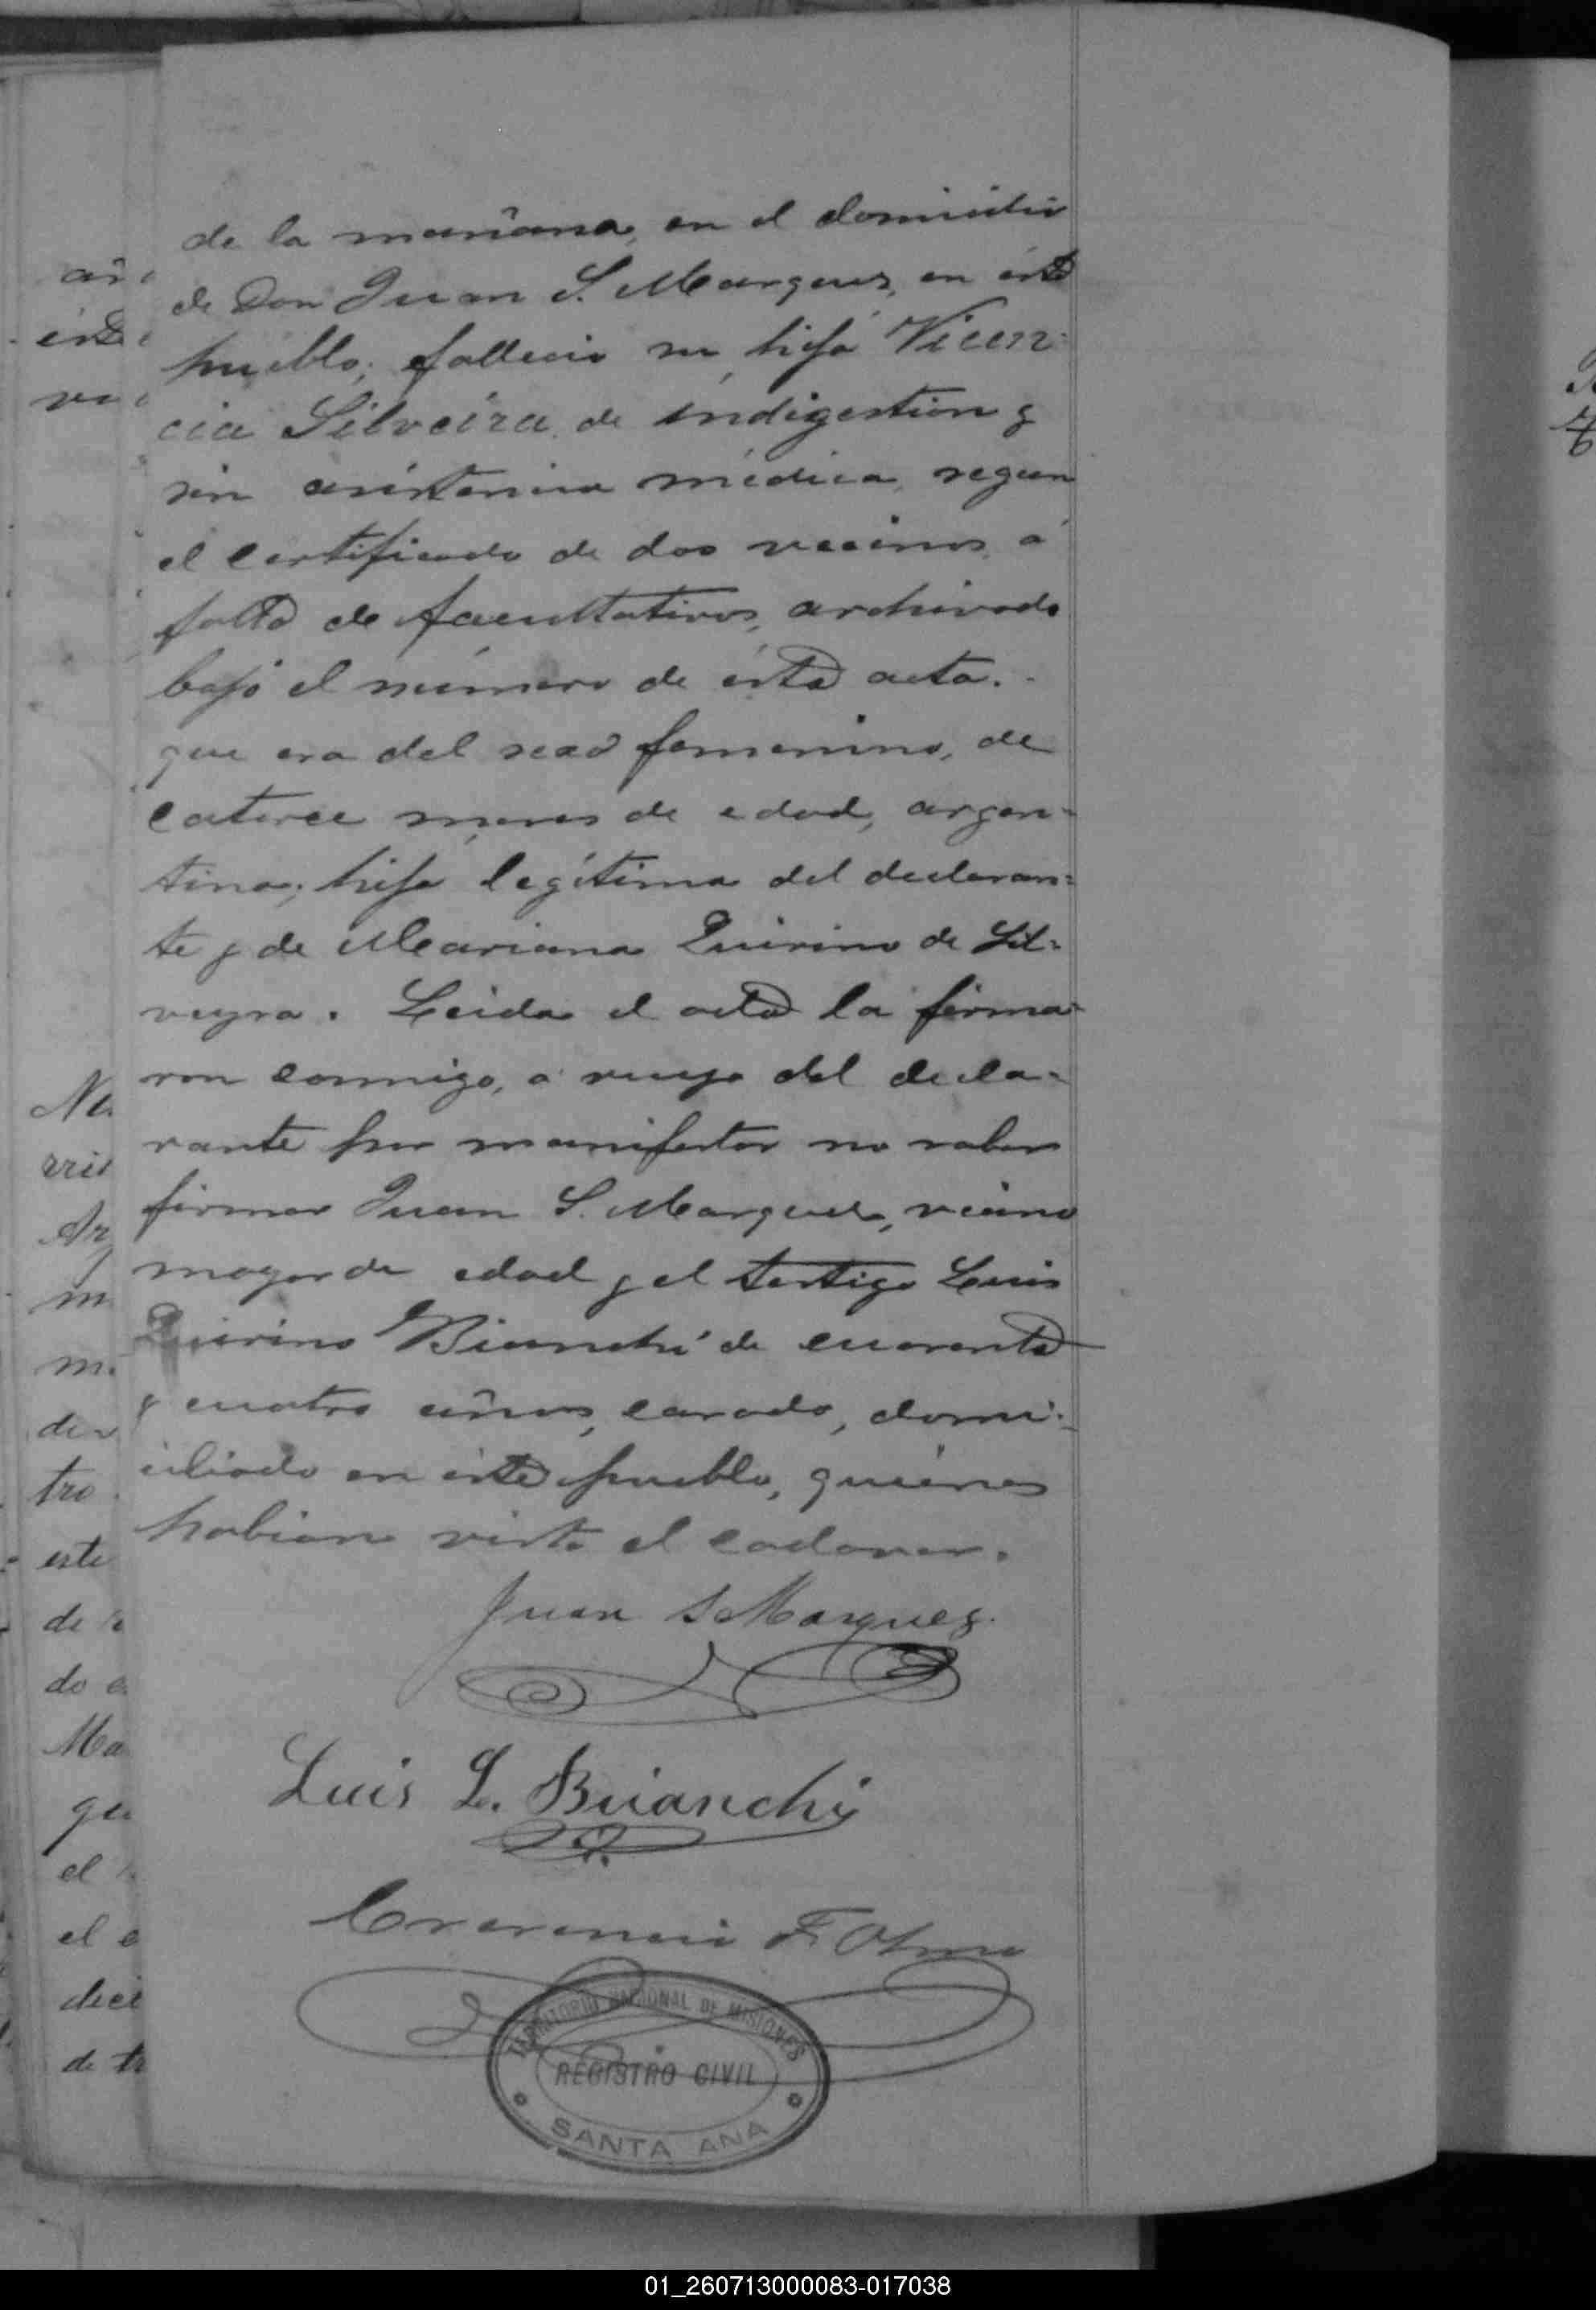 de la mañana, en el domicilio
de Don Juan S. Marques, en ésta
pueblo; fallecio su hija Vicen-
cia Silveira de indigestion y
sin asistencia médica, segun
el certificado de dos vecinos á
falta de facultativos, archivado
bajo el número de ésta acta.
que era del sexo femenino, de
catorce meses de edad, argen-
tina; hija legítima del declaran-
te y de Mariana Quirino de Sil-
veyra. Leida el acta la firma-
ron conmigo, a ruego del decla-
rante por manifestar no saber
firmar Juan S. Marques, vecino
mayor de edad y el testigo Luis
Quirino Bianchi de cuarenta
y cuatro años, casado, domi-
ciliado en éste pueblo, quienes
habian visto el cadaver.
Juan S Marquez
Luis L. Buianchi
TERRITORIO NACIONAL DE MISIONES
REGISTRO CIVIL
SANTA ANA
añ
ésta
Na
Ar
m
tro
este
de
do
Ma
el
el
diez
de
01_260713000083-017038